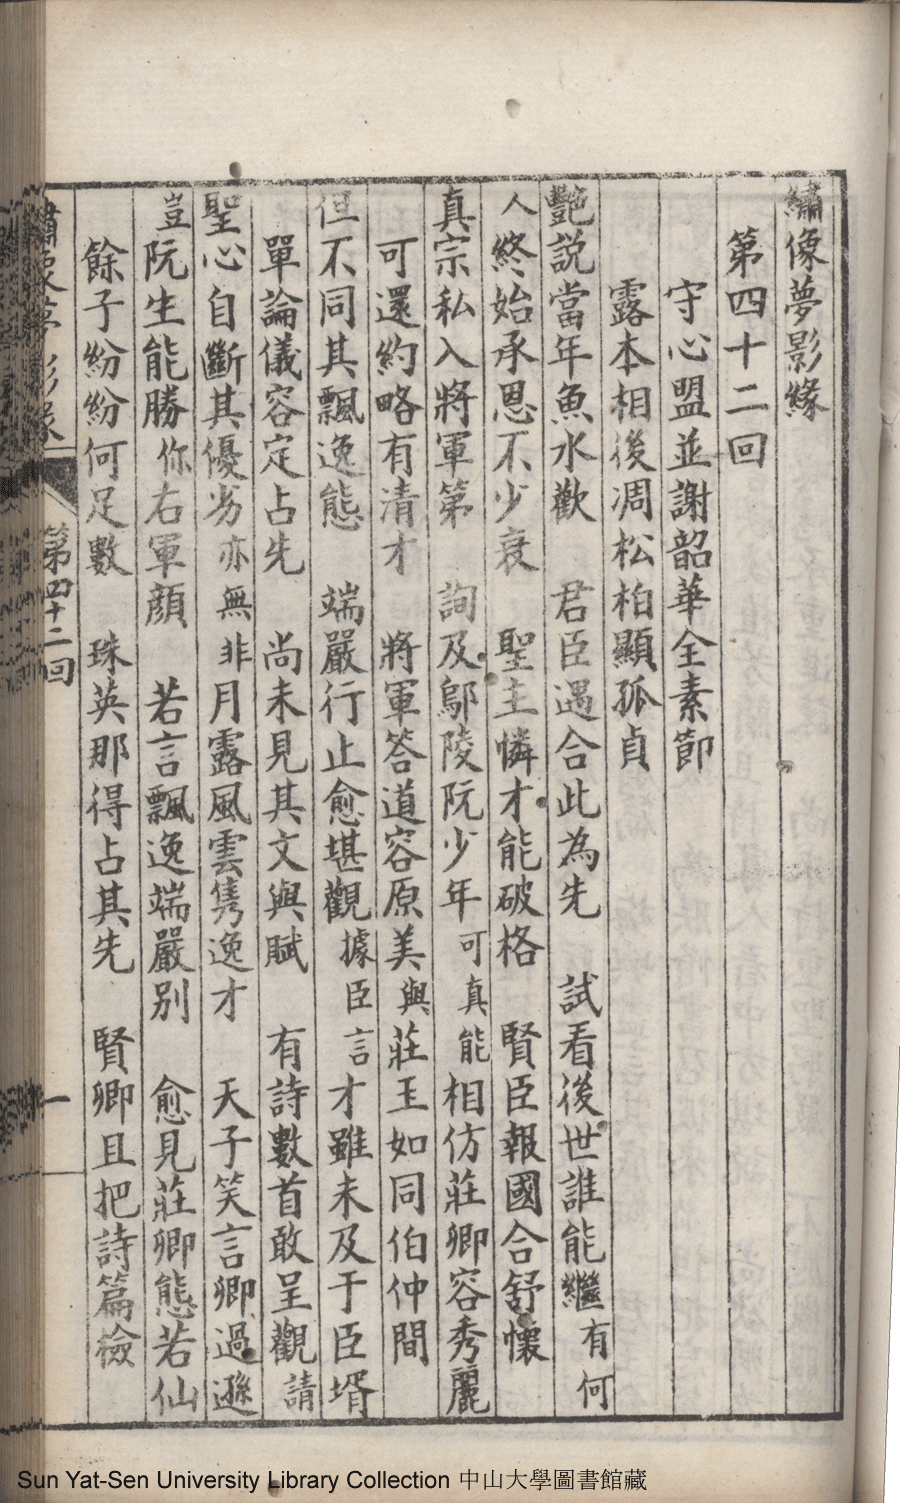 繡像夢影緣
第四十二回
守心盟並謝韶華全素節
露本相後凋松柏顯孤貞
艷説當年魚水歡　君臣遇合此為先　試看後世誰能繼有何
人終始承恩不少衰　聖主憐才能破格　賢臣報國合舒懷
真宗私入將軍第　詢及鄔陵阮少年可真能相仿莊卿容秀麗
可還約略有清才　將軍答道容原美與莊玉如同伯仲間
但不同其飄逸態　端嚴行止愈堪觀據臣言才雖未及于臣壻
單論儀容定占先　尚未見其文與賦　有詩數首敢呈觀請
聖心自斷其優劣亦無非月露風雲雋逸才　天子笑言卿過遜
豈阮生能勝你右軍顔　若言飄逸端嚴別　愈見莊卿態若仙
餘子紛紛何足數　珠英那得占其先　賢卿且把詩篇檢
繡像夢影緣　第四十二回　一
Sun Yat-Sen University Library Collection 中山大學圖書館藏